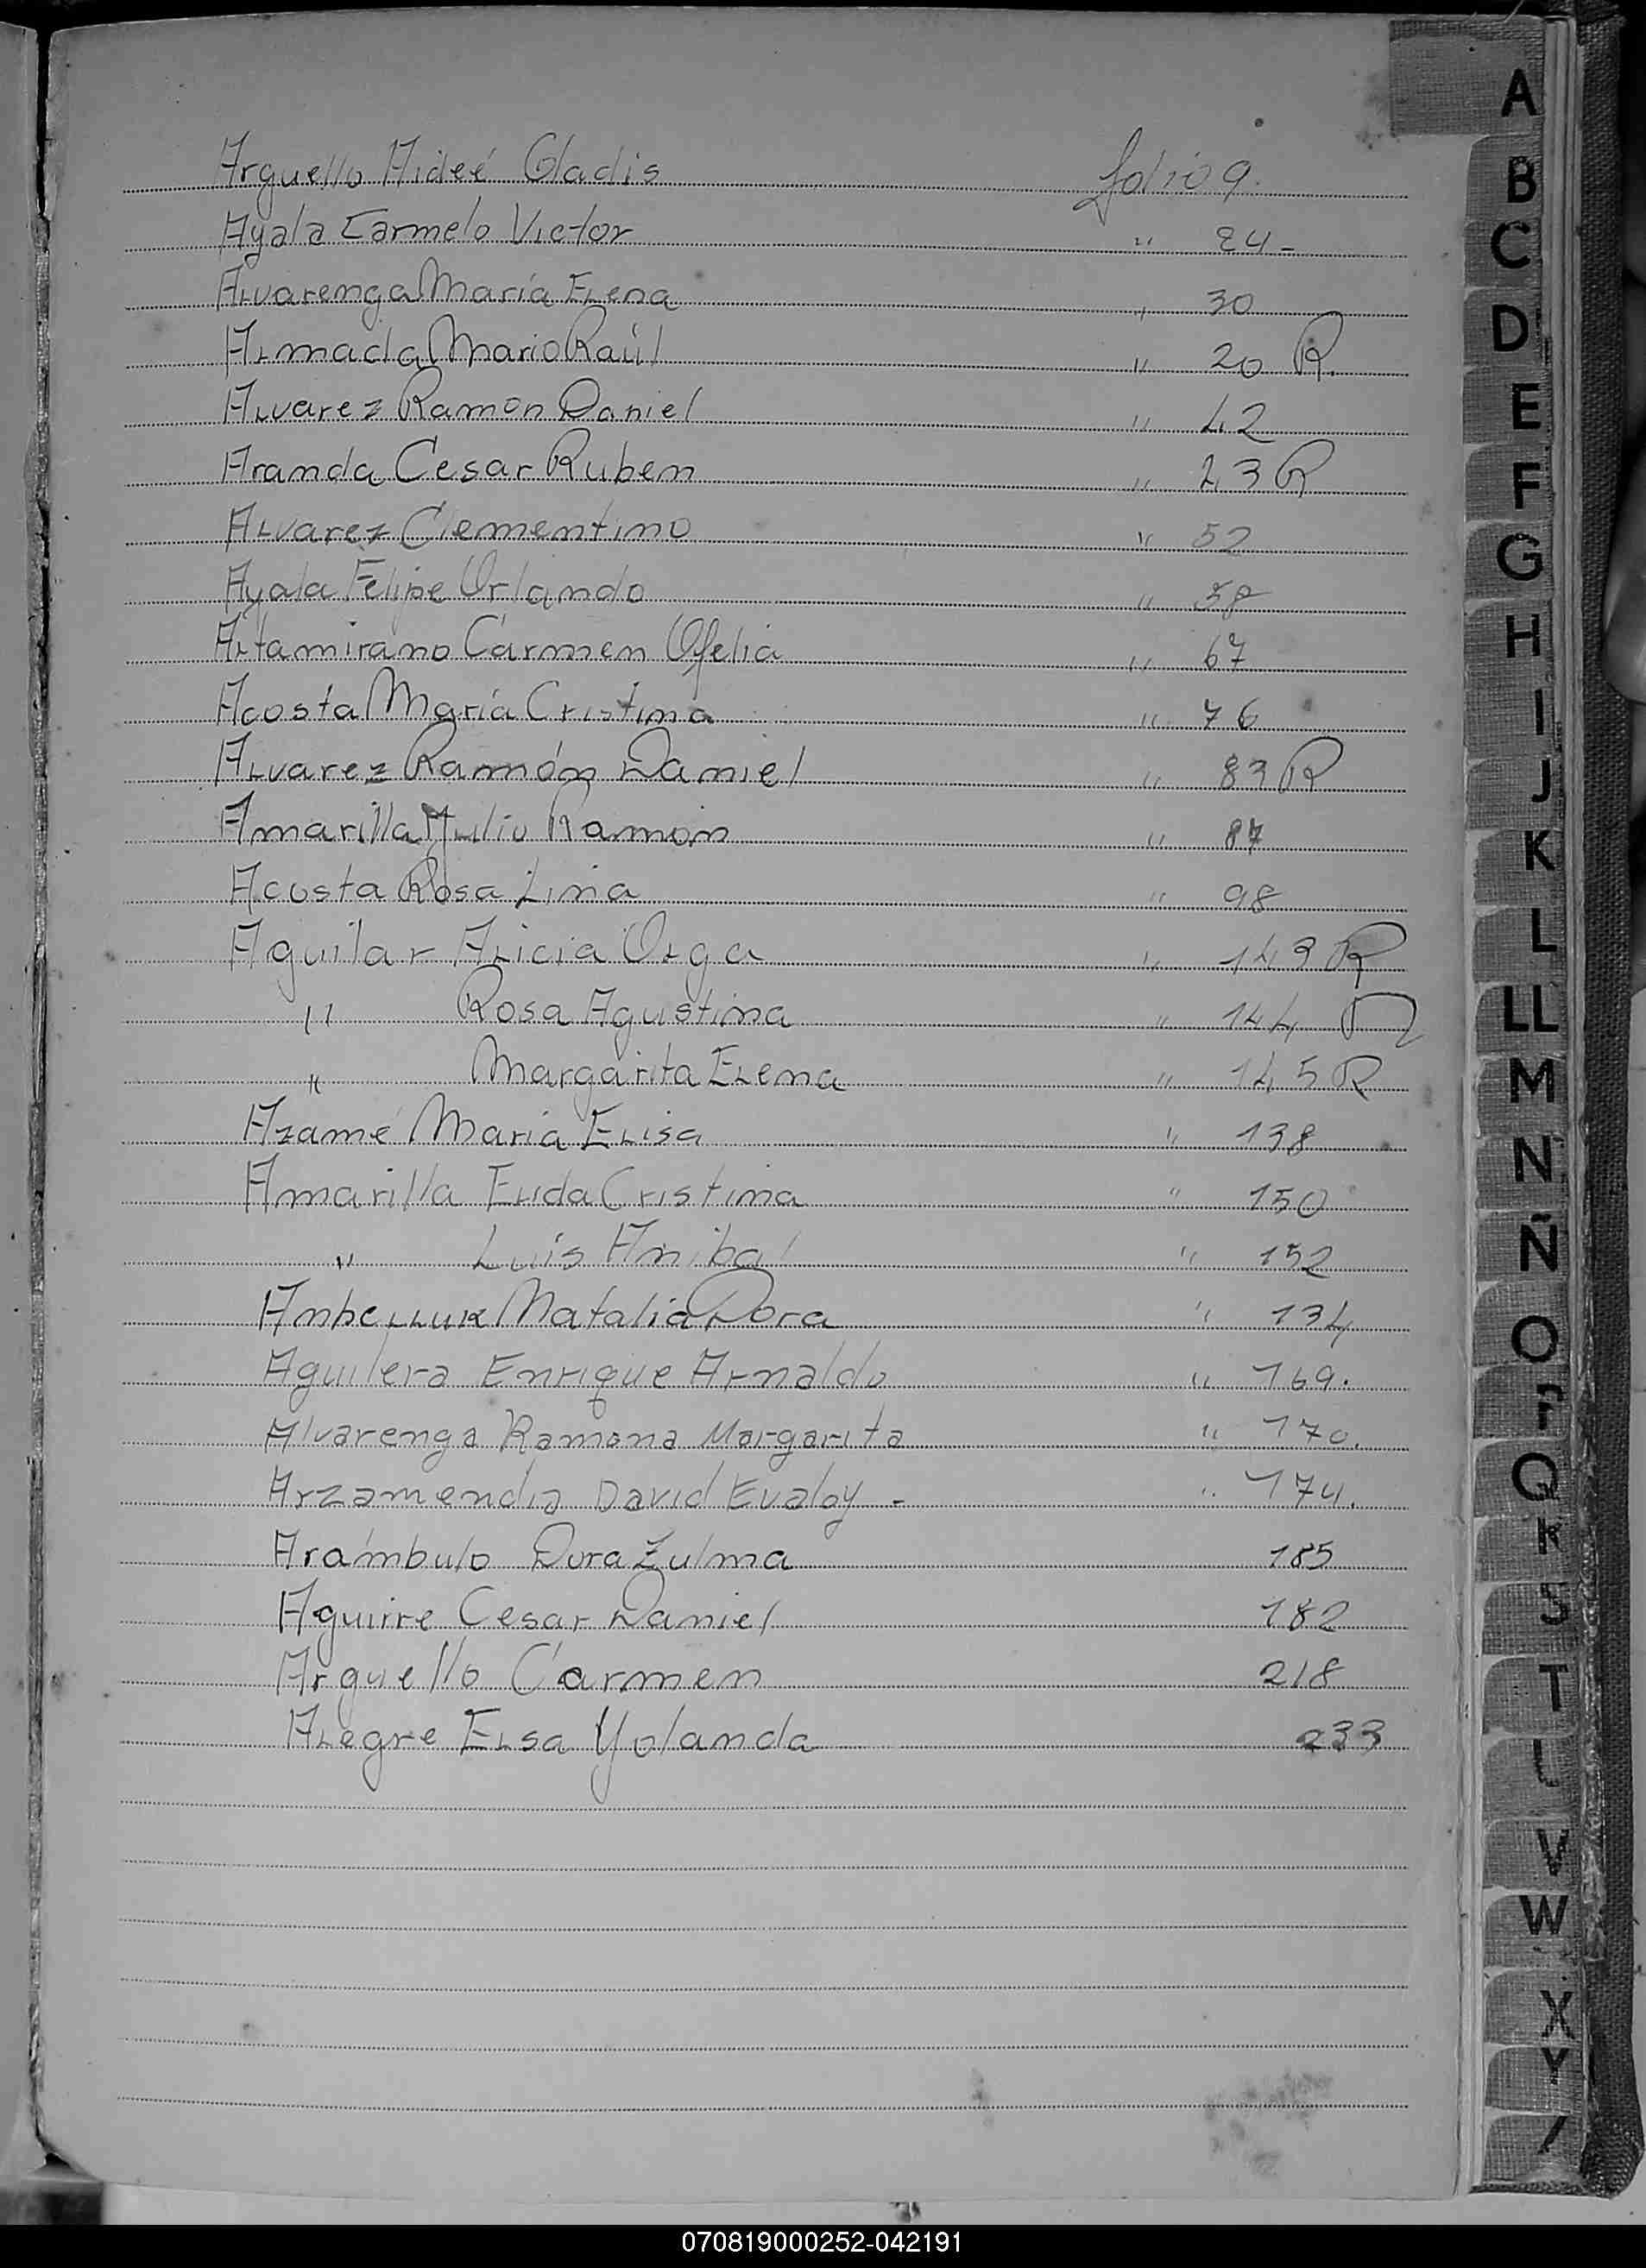 Arguello Aideé Gladis folio 9.
Ayala Carmelo Victor " 24-
Alvarenga María Elena " 30
Almada Mario Raúl " 20 R.
Alvarez Ramón Daniel " 42
Aranda Cesar Ruben " 23 R
Alvarez Clementino " 52
Ayala Felipe Orlando " 58
Altamirano Carmen Ofelia " 67
Acosta María Cristina " 76
Alvarez Ramón Daniel " 83 R
Amarilla Julio Ramón " 87
Acosta Rosa Lina " 98
Aguilar Alicia Olga " 143 R
" Rosa Agustina " 144 R
" Margarita Elena " 145 R
Azamé María Elisa " 138
Amarilla Elida Cristina " 150
" Luis Anibal " 152
Natalia Dora " 134
Aguilera Enrique Arnaldo " 169.
Alvarenga Ramona Margarita " 170.
Arzamendia David Evaloy - " 174.
Arámbulo Dora Zulma 185
Aguirre Cesar Daniel 182
Arguello Carmen 218
Alegre Elsa Yolanda 233
A
B
C
D
E
F
G
H
I
J
K
L
LL
M
N
Ñ
O
P
Q
R
S
T
V
W
X
Y
070819000252-042191